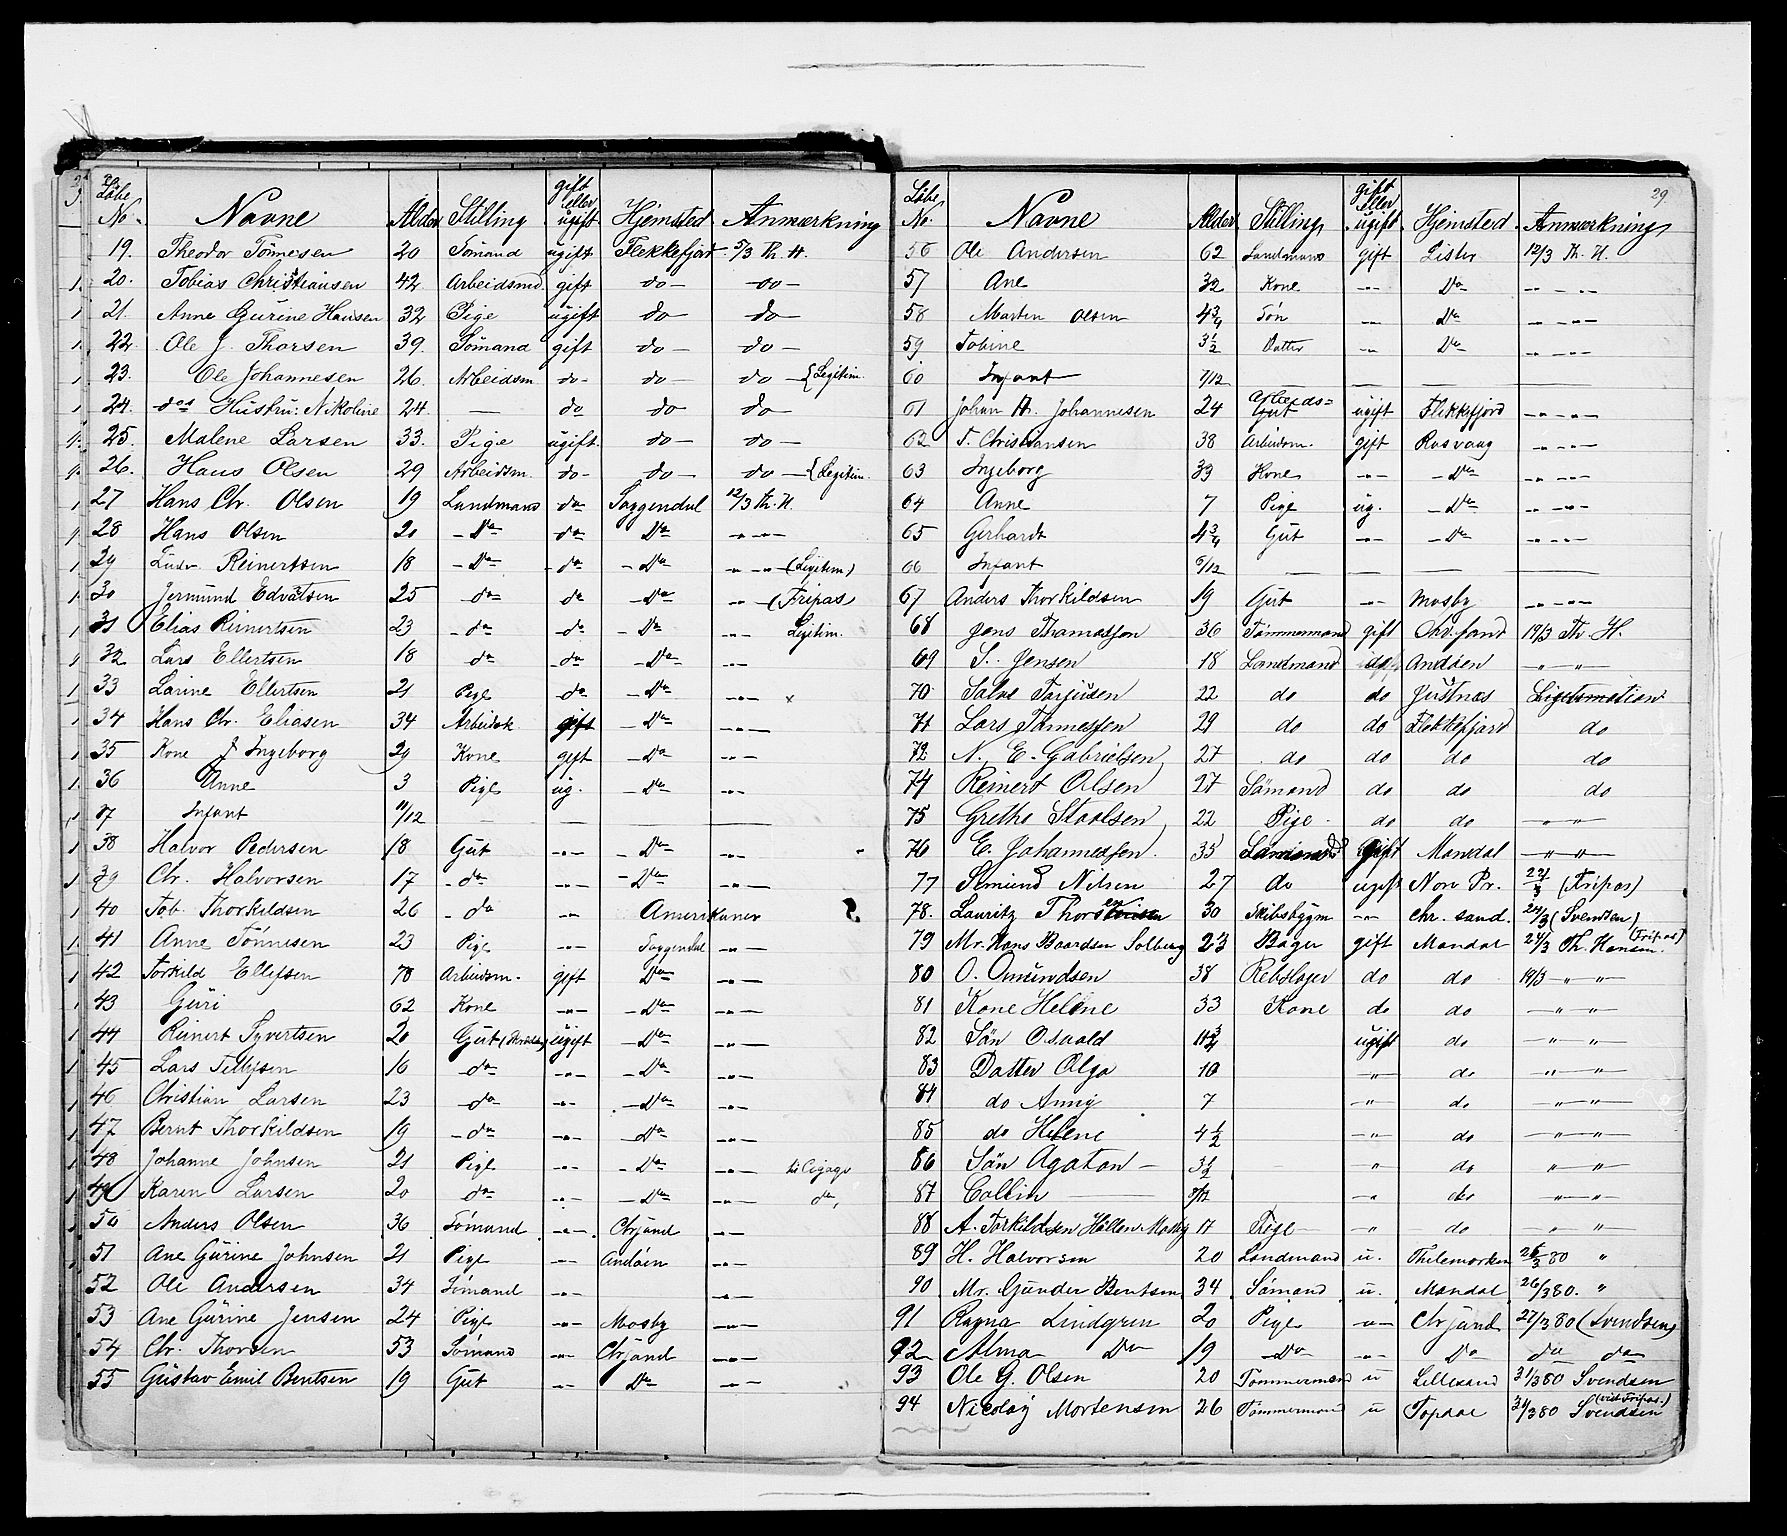 Løbe No. Navne Alder Stilling gift eller ugift Hjemsted Anmærkning
19. Theodor Tönnesen 20 Sömand ugift Flekkefjord 5/3 Th. H.
20. Tobias Christiansen 42 Arbeidsmd. gift do — do —
21. Anne Gurine Hansen 32 Pige ugift do do
22. Ole J. Thorsen 39. Sömand gift do — do —
23. Ole Johannesen 26. Arbeidsm do - do — do — (Legitim.
24. dos Hustru: Nikoline 24. — do do do —
25. Malene Larsen 33. Pige ugift. do — do —
26. Hans Olsen 29 Arbeidsm. do - do — do — (Legitim.
27 Hans Chr. Olsen 19 Landmand do Soggendal 12/3 Th. H.
28 Hans Olsen 20 - Do do Do - " - " -
29 Reinertsen 18 - Do - do - Do " - " (Legitim)
30 Jermund Edvatsen 25 do do - Do - " - (Fripas)
31 Elias Reinertsen 23 - do - do - Do - " - Legitim.
32 Lars Ellertsen 18 do - do - Do - " -
33 Larine Ellertsen 21 Pige - do - Do - " - x
34 Hans Chr. Eliasen 34 Arbeidsk. gift - Do - " -
35 Kone J Ingeborg 29 Kone gift - Do - " -
36 Anne 3 Pige ug. - Do - " -
37 Infant 11/12 — — — —
38 Halvor Pedersen 18 Gut - " - - Do - " -
39 Chr. Halvorsen 17 - do - " - - Do - " -
40 Tob. Thorkildsen 26 - do - " - Amerikaner
41 Anne Tönnesen 23 Pige - " - Soggendal - " -
42 Torkild Ellefsen 70 Arbeidsm. gift Do - " -
43 Guri 62 Kone - " - - Do - " -
44 Reinert Syvertsen 20 Gut ugift - Do - " -
45 Lars Tellefsen 16 - do - " - - Do - " -
46 Christian Larsen 23 - do - " - - Do - " -
47 Bernt Thorkildsen 19 - do - " - - Do - " -
48 Johanne Johnsen 21 Pige - " - - Do - " -
49 Karen Larsen 20 do - " - - Do - " - do
50 Anders Olsen 36 Sömand - " - Chrsand - " -
51 Ane Gurine Johnsen 21 Pige - " - Andöen - " -
52 Ole Andersen 34 Sömand - " - - " -
53 Ane Gurine Jensen 24 Pige - " - Mosby - " -
54 Chr. Thorsen 53 Sömand - " - Chrsand - " -
55 Gustav Emil Bentsen 19 Gut - " - Do - " -
29
Löbe No. Navne Alder Stilling gift eller ugift Hjemsted Anmærkning
56 Ole Andersen 62 Landmand gift Lister 12/3 Th. H.
57 Ane 32 Kone - " - Do - " - " -
58 Marten Olsen 4 3/4 Sön - " - Do - " - " -
59 Tobine 3 1/2 Datter - " - Do - " - " -
60 Infant 7/12 — — — —
61 Johan A. Johannesen 24 Arbeids= Gut ugift Flekkefjord - " - " -
62 T. Christiansen 38 Arbeidsm. gift Rosvaag - " - " -
63 Ingeborg 33 Kone - " - - Do - " - " -
64 Anne 7 Pige ug. - Do - " - " -
65 Gerhardt 4 3/4 Gut - " - - Do - " - " -
66 Infant 6/12 — — — —
67 Anders Thorkildsen 19 Gut - " - Mosby - " - " -
68 Jens Thomassen 36 Tömmermand gift Chr.sand 19/3 Th. H.
69 S. Jensen 18 Landmand do Andöen " "
70 Salve Tarjusen 22 do do Justnæs Legitimation
71 Lars Tönnessen 29 do do Flekkefjord do
72. N. E. Gabrielsen 27 do do do do
74 Reinert Olsen 27 Sömand do do do
75 Grethe Staalsen 22 Pige do do " "
76 E. Johannessen. 35 Landmand gift Mandal " "
77 Semund Nilsen 27 do ugift Nor Pr. 22/3 (Fripas)
78. Lauritz Thorsen 30 Skibsbygm - " - Chr. sand. 24/3 (Svendsen)
79 Mr. Hans Baardsen Solberg 23 Bager gift Mandal 24/3 Th. Hansen. (Fripas)
80 O. Omundsen 38 Rebslager do do 19/3 " "
81 Kone Helene 33 Kone do do " "
82 Sön Osvald 11 3/4 ugift do " "
83 Datter Olga 10 " do " "
84 do Anny 7 " do " "
85 do Helene 4 1/2 " do " "
86 Sön Agaton — 3 1/2 " do " "
87 Collin — " do " "
88 A. Torkildsen 17 Pige " do " "
89 H. Halvorsen 20 Landmand u. Thelemarken 26/3 80 "
90 Mr. Gunder Bentsen 34 Sömand u. Mandal 26/3 80. "
91 Ragna Lindgren 20 Pige - " - Chrsand 27/3 80 (Svendsen)
92 Alma Do 19 - Do - " - Do do do
93 Ole G. Olsen 20 Tömmermand u Lillesand 31/3 80 Svendsen
94 Nicolay Mortensen 26 Tömmermand u Topdal 31/3 80 Svendsen (vist Fripas.)